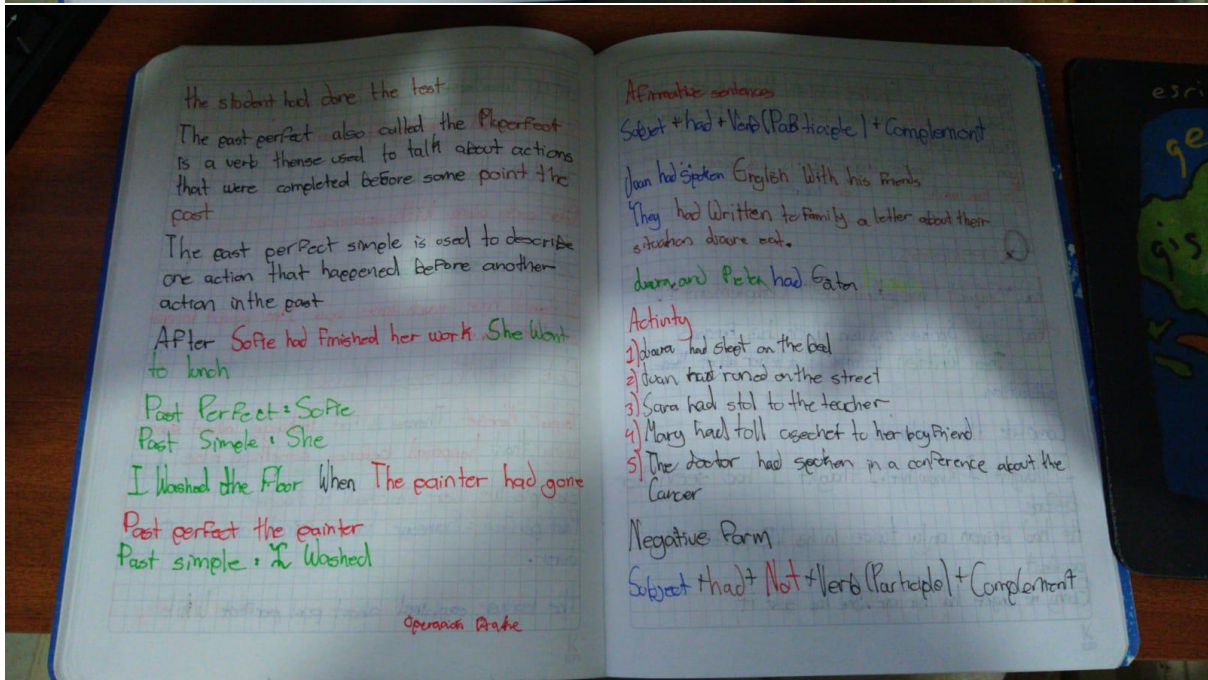 the student had done the test
The past perfect also called the Pluperfect
is a verb thense used to talk about actions
that were completed before some point the
past
The past perfect simple is used to describe
one action that happened before another
action in the past
After Sofie had finished her work She Went
to lunch
Past Perfect: Sofie
Past Simple: She
I Washed the Floor When The painter had gone
Past perfect the painter
Past simple: I Washed
Operación
Afirmative sentences
Subjet + had + Verb (Participle) + Complement
Juan had Spoken English With his friends
They had Written to family a letter about their
situation
and Peter had Eaten
Activity
1) had slept on the bed
2) Juan had runed on the street
3) Sara had stol to the teacher
4) Mary had toll to her boyfriend
5) The doctor had spoken in a conference about the
Cancer
Negative Form
Subject + had + Not + Verb (Participle) + Complement
esri
ge
gis